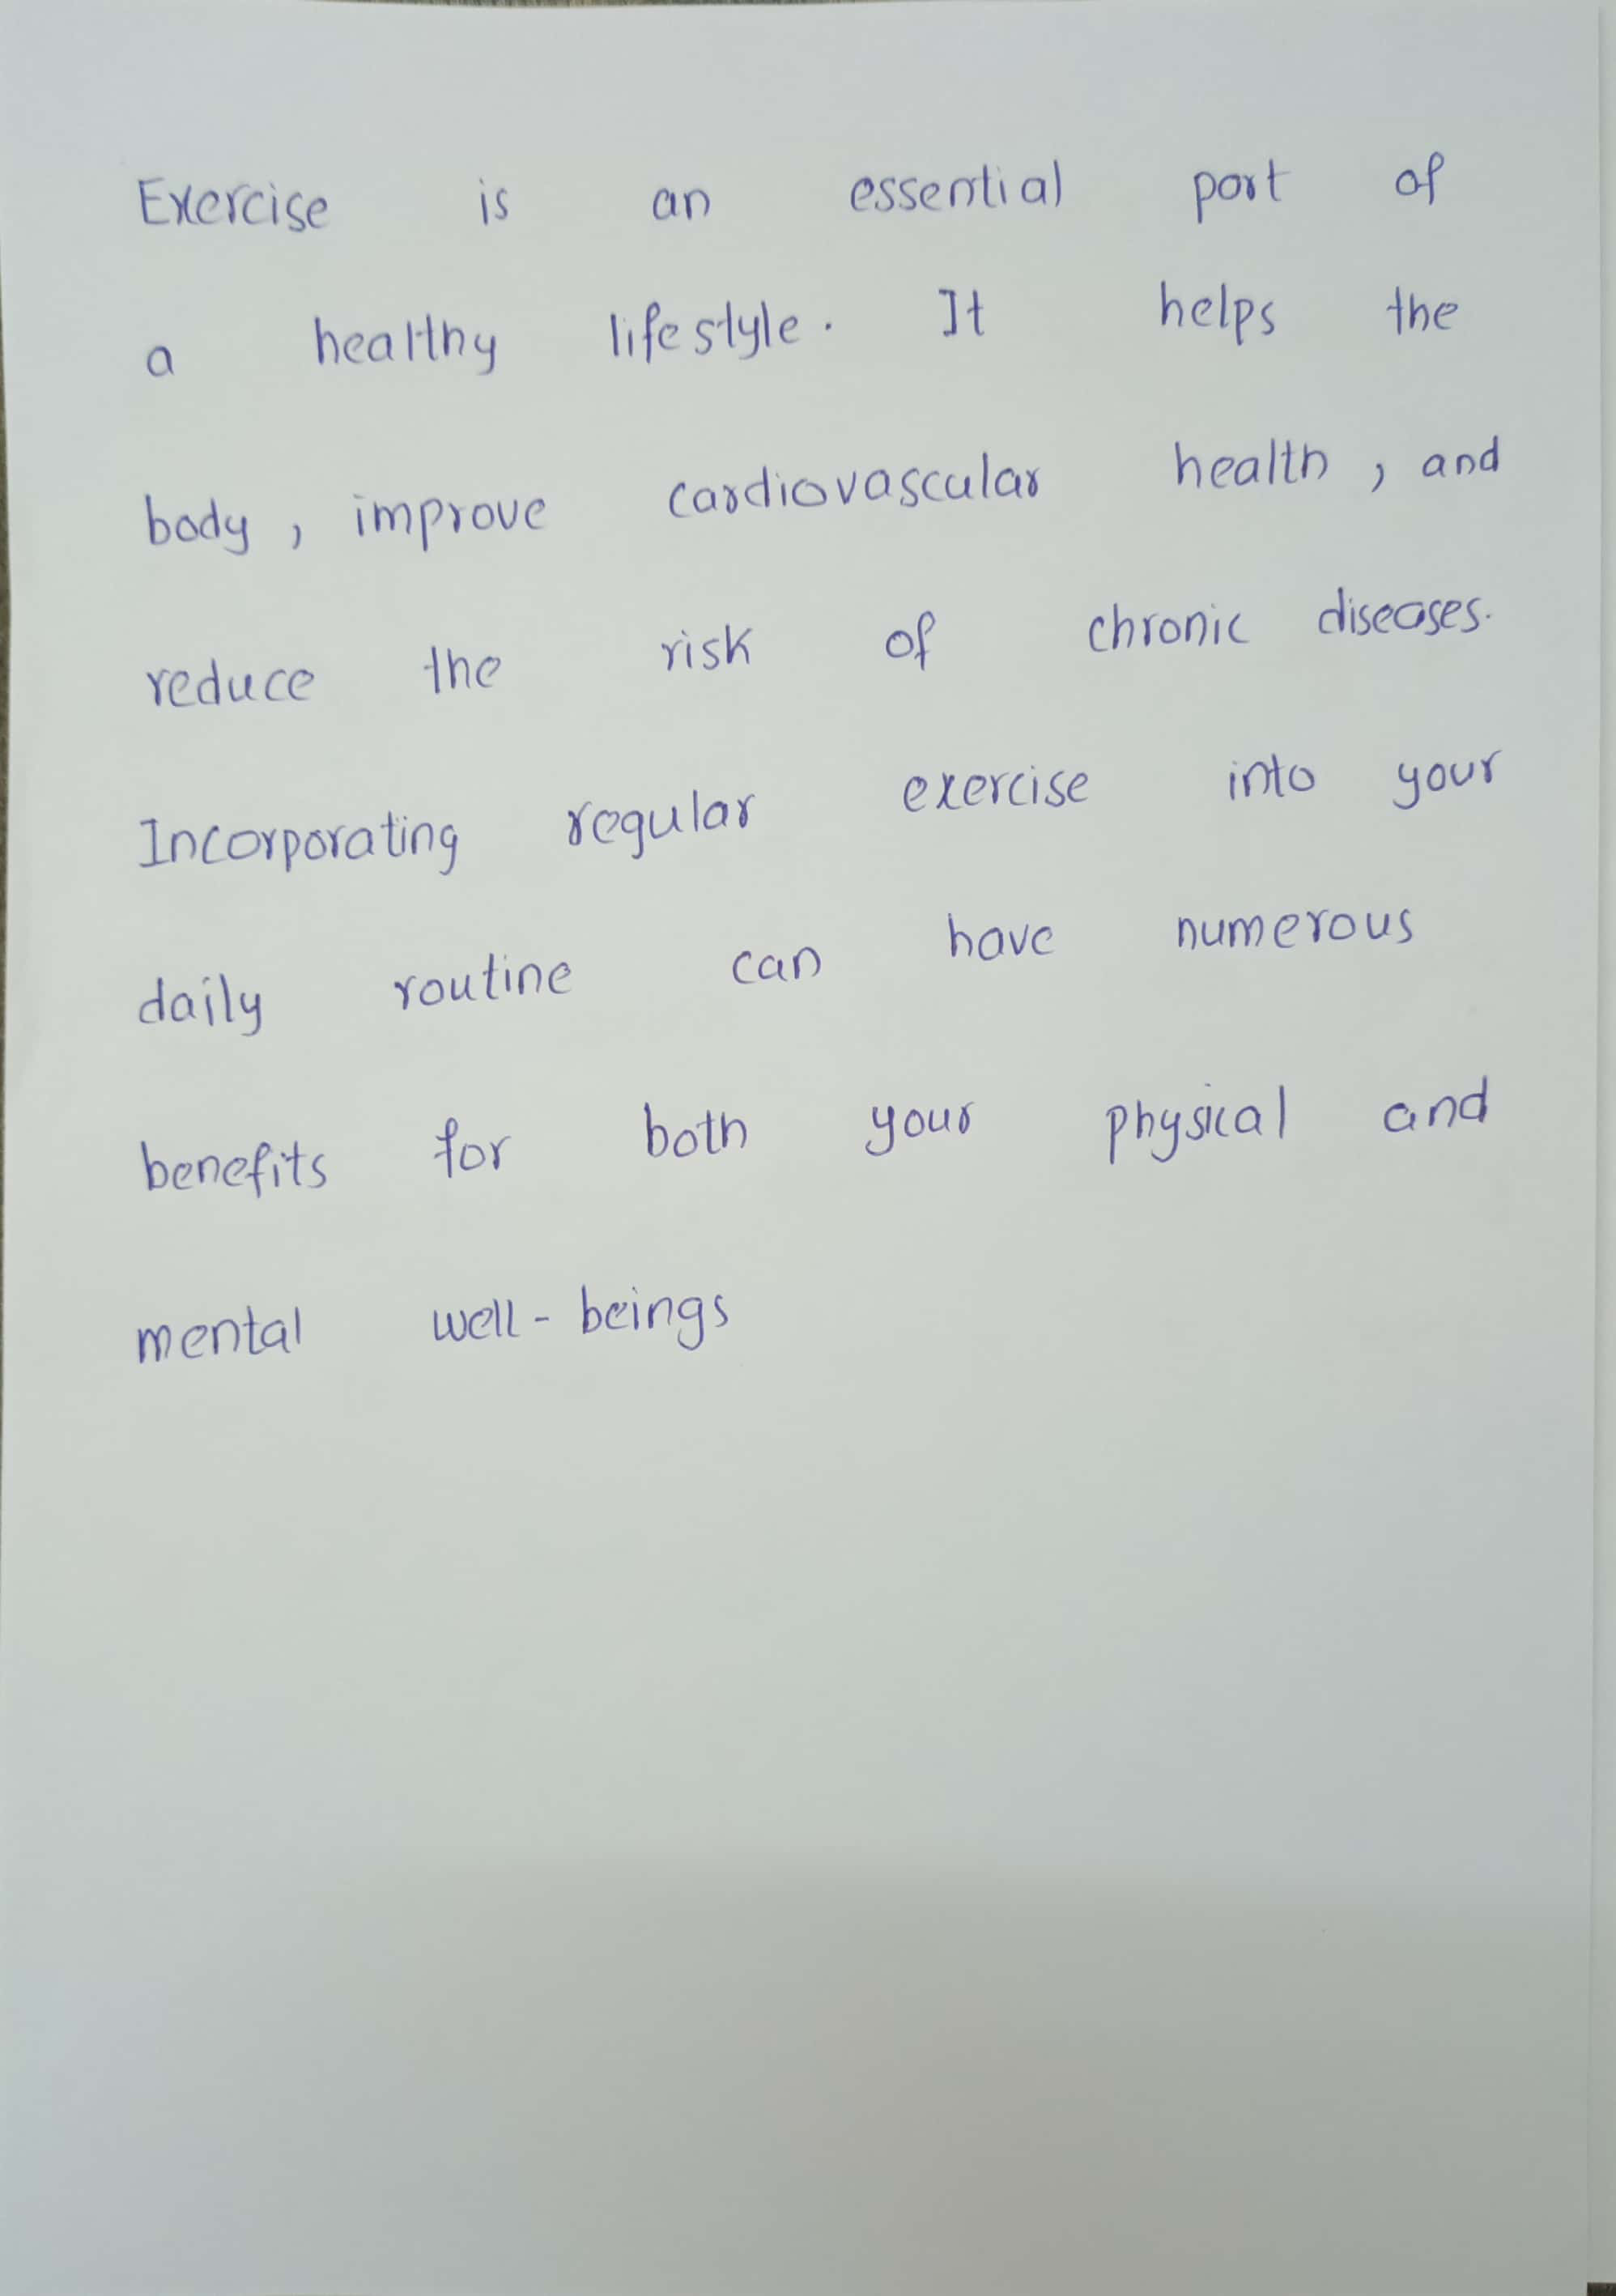 Exercise is an essential part of
a healthy lifestyle. It helps the
body, improve cardiovascular health, and
reduce the risk of chronic diseases.
Incorporating regular exercise into your
daily routine can have numerous
benefits for both your physical and
mental well-beings